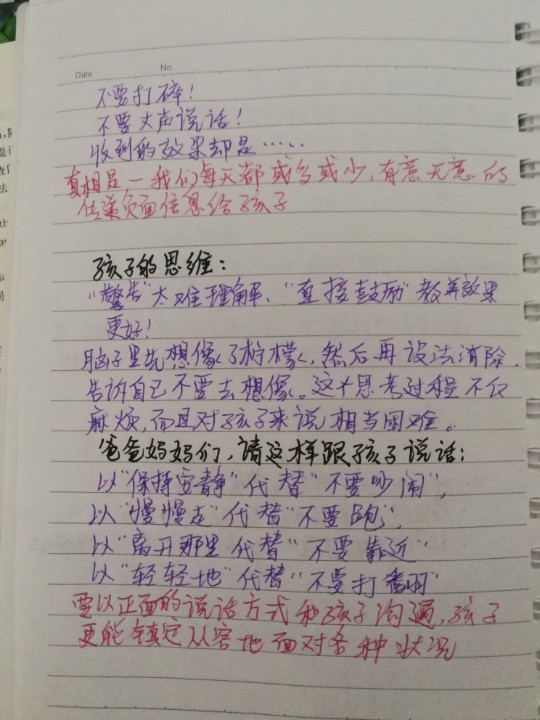 Date No.
不要打碎!
不要大声说话!
收到的效果却是……
真相是一我们每天都或多或少,有意无意的
传递负面信息给孩子
孩子的思维:
"警告"太难理解、"直接鼓励"教养效果
更好!
脑子里先想像了柠檬,然后再设法消除,
告诉自己不要去想像。这个思考过程不仅
麻烦,而且对孩子来说相当困难。
爸爸妈妈们,请这样跟孩子说话:
以"保持安静"代替"不要吵闹",
以"慢慢走"代替"不要跑",
以"离开那里"代替"不要靠近"
以"轻轻地"代替"不要打翻"
要以正面的说话方式和孩子沟通,孩子
更能镇定从容地面对各种状况